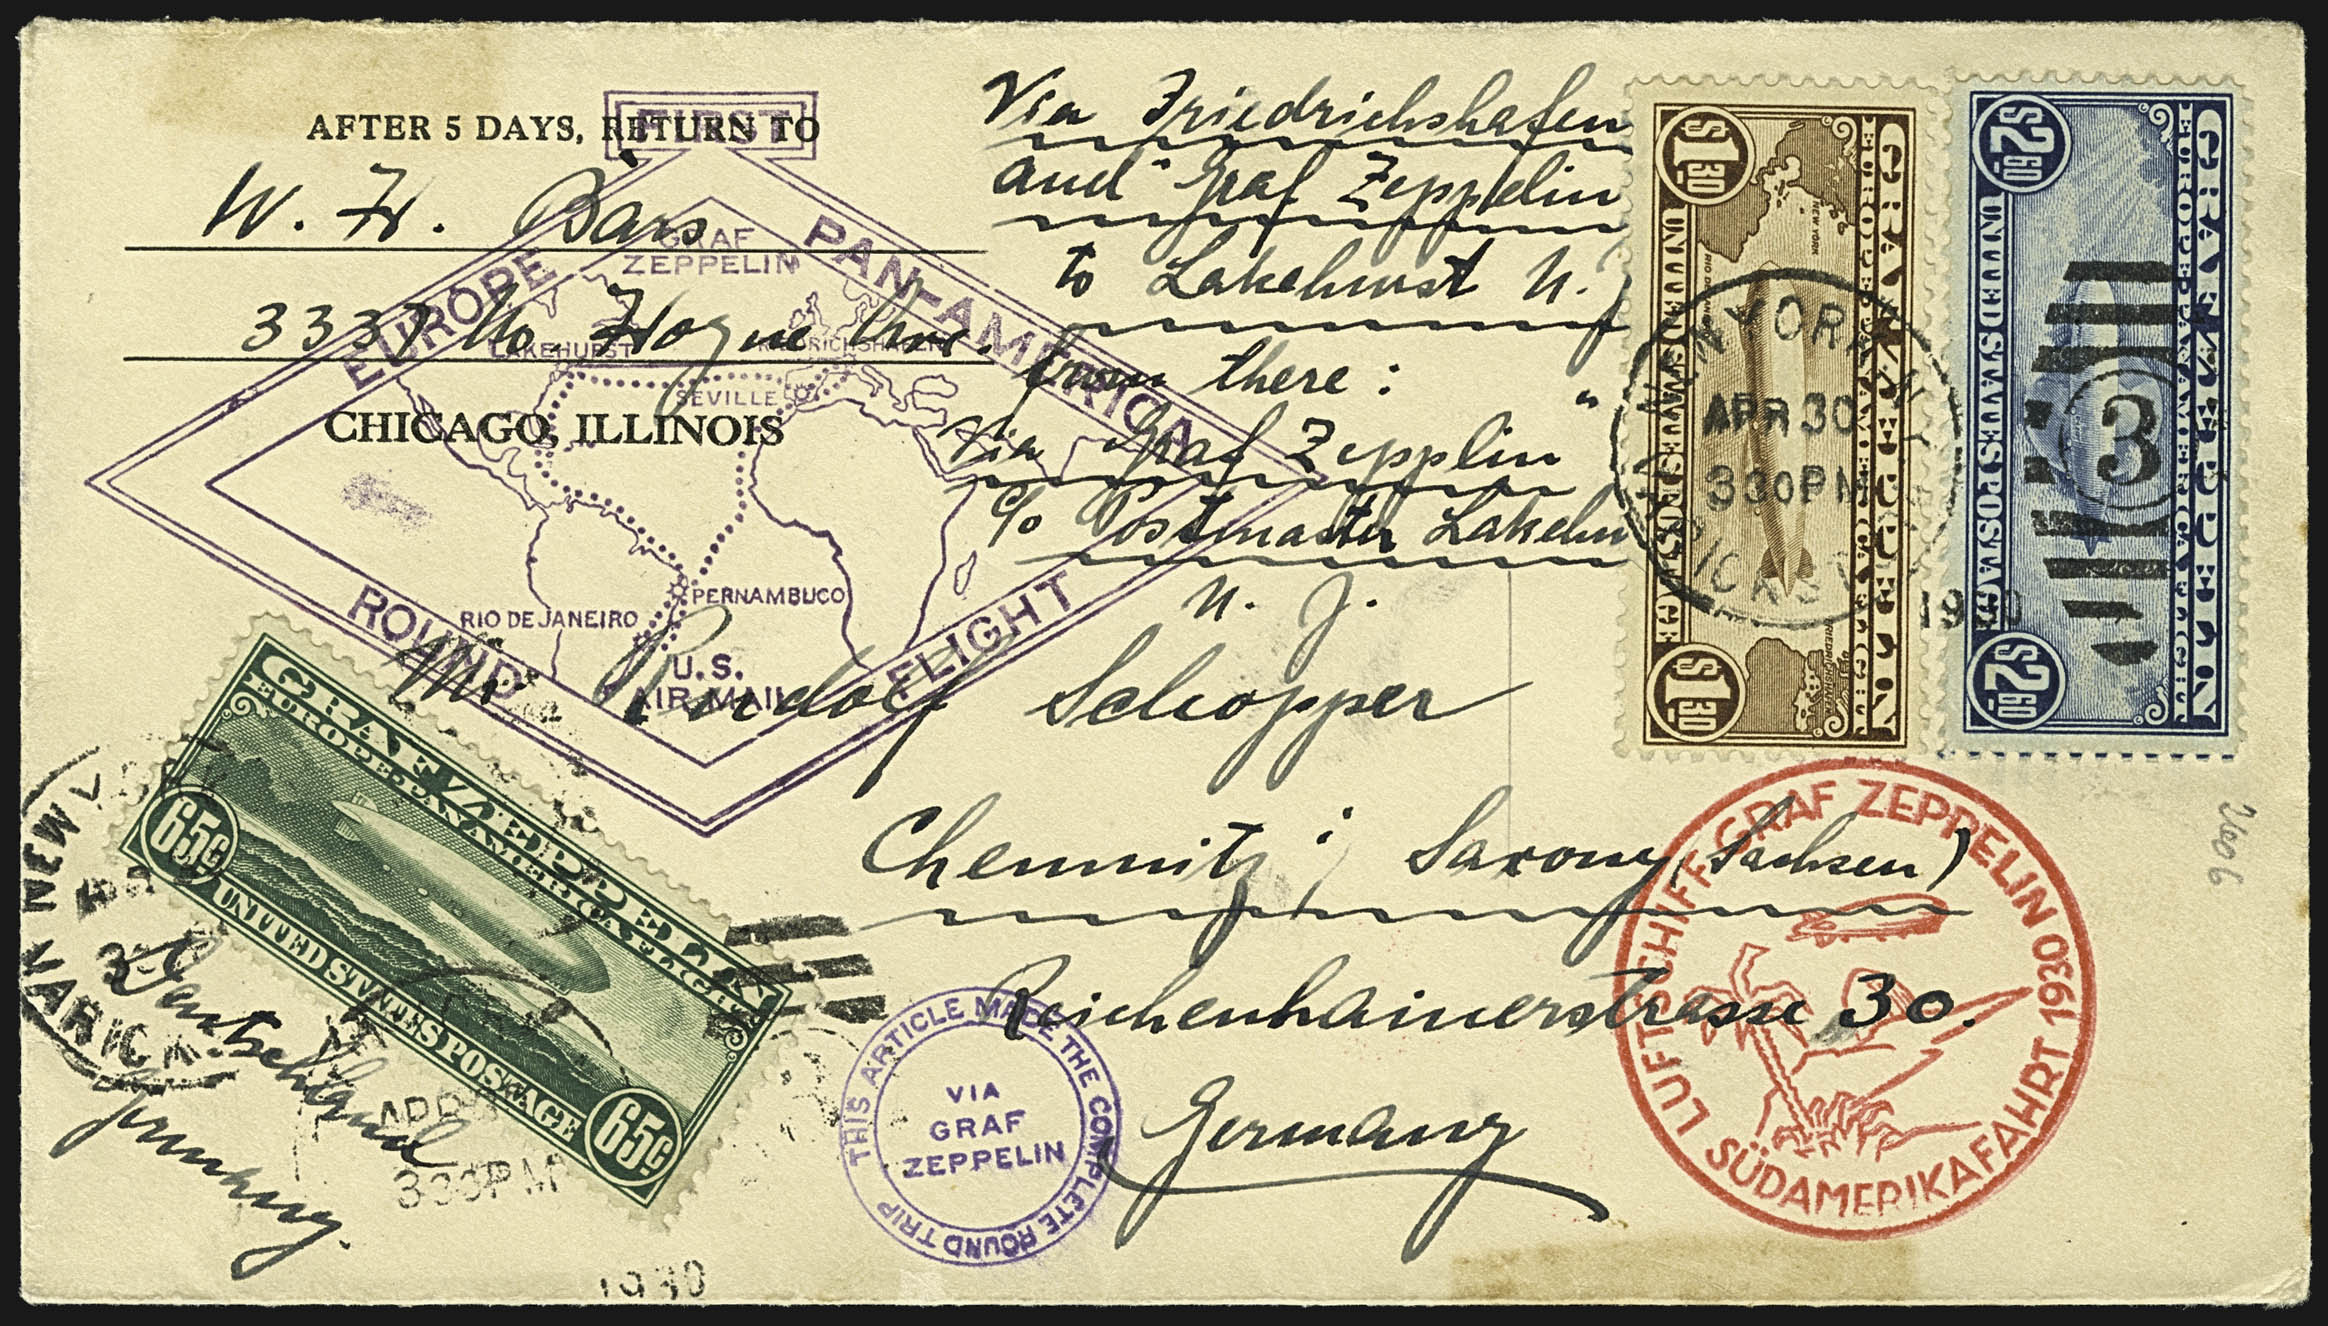 AFTER 5 DAYS, RETURN TO
W. H. Bars
3337 No Ave.
CHICAGO, ILLINOIS
FIRST
EUROPE PAN-AMERICA
ROUND FLIGHT
GRAF
ZEPPELIN
LAKEHURST FRIEDRICHSHAFEN
SEVILLE
PERNAMBUCO
RIO DE JANEIRO
U.S.
AIR MAIL
Via Friedrichshafen
and "Graf Zeppelin
to Lakehurst N. J
from there: "
Via Graf Zeppelin
c/o Postmaster
N. J.
Mr. Rudolf Schopper
Chemnitz; Saxony (Sachsen)
Reichenhainerstrasse 30.
Germany
Deutschland
Germany.
GRAF ZEPPELIN
EUROPE PAN-AMERICA FLIGHT
UNITED STATES POSTAGE
$1 30
$1 30
NEW YORK
RIO DE JANEIRO
FRIEDRICHSHAFEN
GRAF ZEPPELIN
EUROPE PAN-AMERICA FLIGHT
UNITED STATES POSTAGE
$2 60
$2 60
GRAF ZEPPELIN
EUROPE PAN-AMERICA FLIGHT
UNITED STATES POSTAGE
65c
65c
NEW YORK, N.Y.
APR 30
330PM
VARICK ST
1930
3
NEW YORK
VARICK
APR
330PM
1930
THIS ARTICLE MADE THE COMPLETE ROUND TRIP
VIA
GRAF
ZEPPELIN
LUFTSCHIFF GRAF ZEPPELIN 1930
SÜDAMERIKAFAHRT